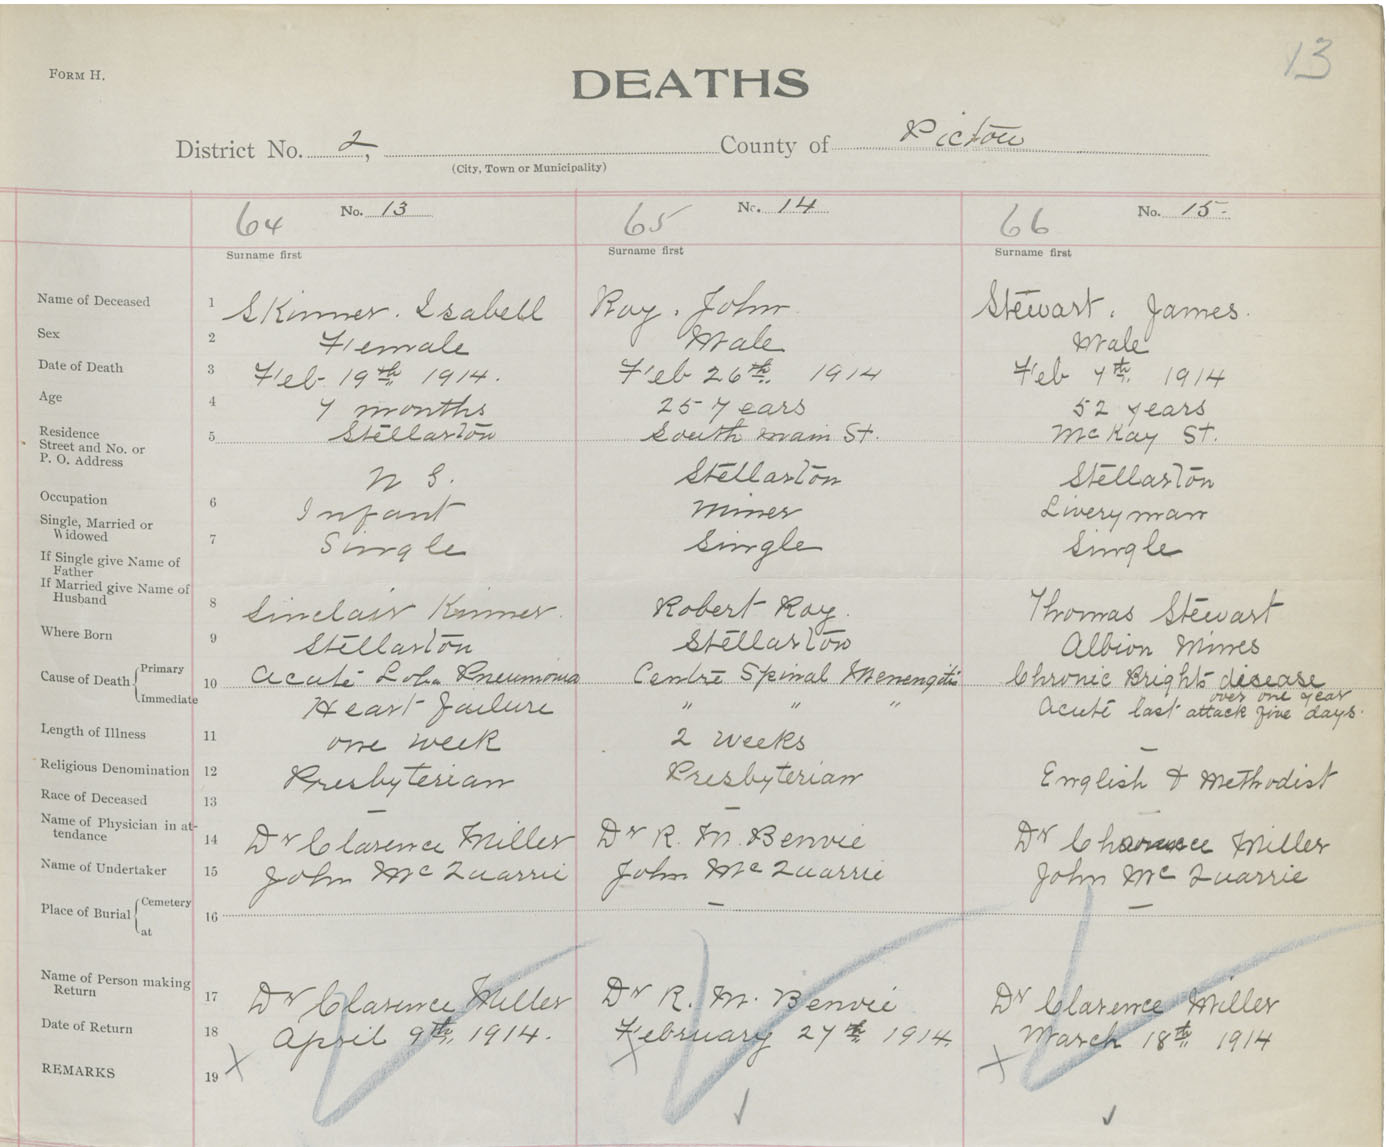 13
FORM H.
DEATHS
District No. 2, County of Pictou
(City, Town or Municipality)
64 No. 13 65 No. 14 66 No. 15.
Surname first Surname first Surname first
Name of Deceased 1 Skinner. Isabell Roy, John Stewart, James.
Sex 2 Female Male Male
Date of Death 3 Feb 19th 1914. Feb 26th 1914 Feb 7th 1914
Age 4 7 months 25 years 52 years
Residence
Street and No. or
P. O. Address
5 Stellarton South Main St. McKay St.
N S. Stellarton Stellarton
Occupation 6 Infant Miner Liveryman
Single, Married or
Widowed
7 Single Single Single
If Single give Name of
Father
If Married give Name of
Husband
8 Sinclair Kinner. Robert Roy. Thomas Stewart
Where Born 9 Stellarton Stellarton Albion Mines
Cause of Death Primary 10 Acute Pneumonia Centre Spinal Menengitis Chronic Brights disease
over one year
Immediate Heart failure " " " Acute last attack five days.
Length of Illness 11 one week 2 weeks —
Religious Denomination 12 Presbyterian Presbyterian English & Methodist
Race of Deceased 13 — — —
Name of Physician in at-
tendance
14 Dr Clarence Miller Dr R. M. Benvie Dr Miller
Name of Undertaker 15 John McQuarrie John McQuarrie John McQuarrie
Place of Burial Cemetery 16 — —
at
Name of Person making
Return
17 Dr Clarence Miller Dr R. M. Benvie Dr Clarence Miller
Date of Return 18 April 9th, 1914. February 27th 1914 March 18th 1914
REMARKS 19 X X X